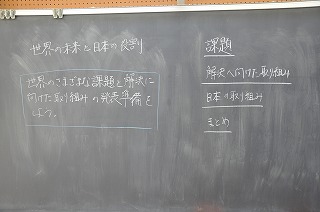 世界の未来と日本の役割
世界のさまざまな課題と解決に
向けた取り組みの発表準備を
しよう。
課題
解決へ向けた取り組み
日本の取り組み
まとめ